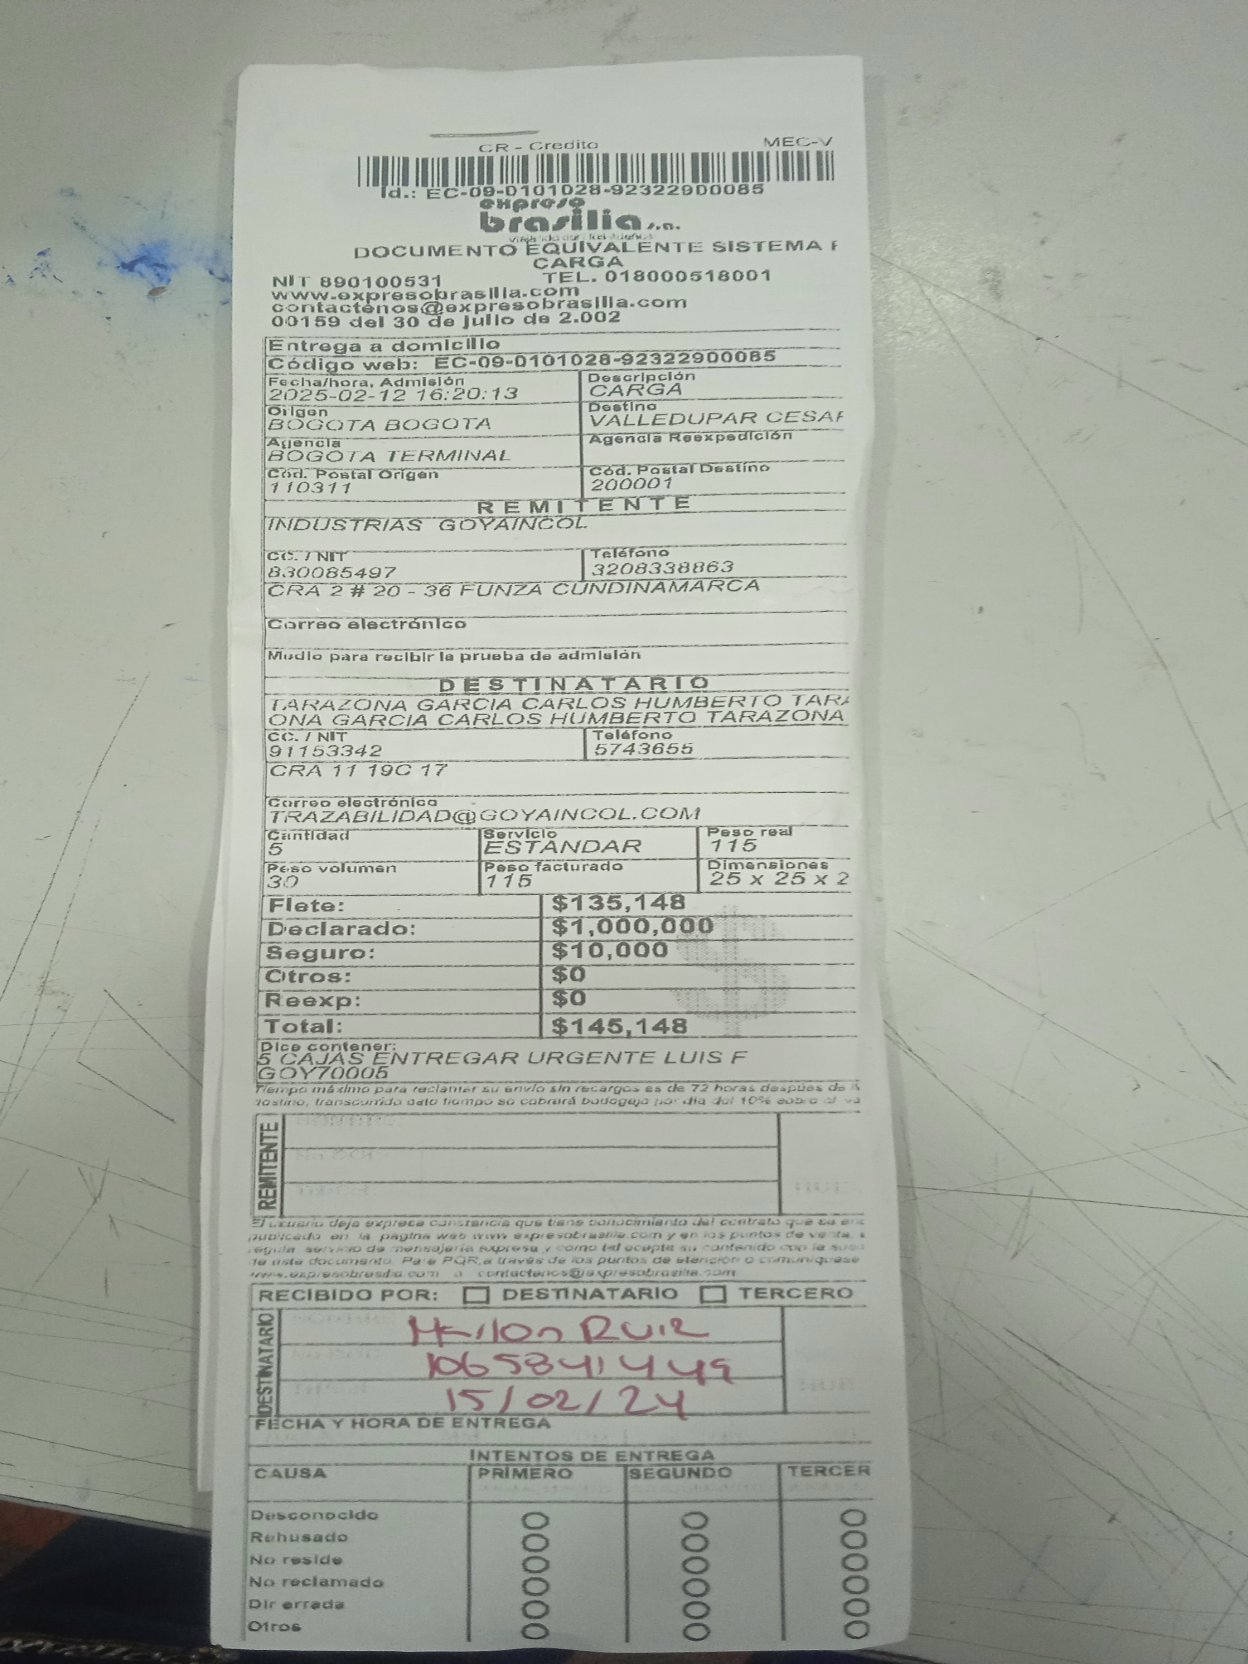 CR - Credito MEC-V
Id.: EC-09-0101028-92322900085
expreso
brasilia s.a.
DOCUMENTO EQUIVALENTE SISTEMA
CARGA
NIT 890100531 TEL. 018000518001
www.expresobrasilia.com
contactenos@expresobrasilia.com
00159 del 30 de julio de 2.002
Entrega a domicilio
Código web: EC-09-0101028-92322900085
Fecha/hora, Admisión Descripción
2025-02-12 16:20:13 CARGA
Origen Destino
BOGOTA BOGOTA VALLEDUPAR CESAR
Agencia Agencia Reexpedición
BOGOTA TERMINAL
Cód. Postal Origen Cód. Postal Destino
110311 200001
REMITENTE
INDUSTRIAS GOYAINCOL
CC. / NIT Teléfono
830085497 3208338863
CRA 2 # 20 - 36 FUNZA CUNDINAMARCA
Correo electrónico
Medio para recibir la prueba de admisión
DESTINATARIO
TARAZONA GARCIA CARLOS HUMBERTO TARA
ONA GARCIA CARLOS HUMBERTO TARAZONA
CC. / NIT Teléfono
91153342 5743655
CRA 11 19C 17
Correo electrónico
TRAZABILIDAD@GOYAINCOL.COM
Cantidad Servicio Peso real
5 ESTANDAR 115
Peso volumen Peso facturado Dimensiones
30 115 25 x 25 x 2
Flete: $135,148
Declarado: $1,000,000
Seguro: $10,000
Otros: $0
Reexp: $0
Total: $145,148
Dice contener:
5 CAJAS ENTREGAR URGENTE LUIS F
GOY70005
Tiempo máximo para reclamar su envío sin recargos es de 72 horas después de
destino, transcurrido este tiempo se cobrará bodegaje por día del 10% sobre el va
REMITENTE
El usuario deja expresa constancia que tiene conocimiento del contrato que se enc
publicado en la página web www.expresobrasilia.com y en los puntos de venta,
regula servicio de mensajería expresa y como tal acepta su contenido con la
de este documento. Para PQR a través de los puntos de atención o comuníquese
www.expresobrasilia.com o contactenos@expresobrasilia.com
RECIBIDO POR: DESTINATARIO TERCERO
DESTINATARIO
Ruiz
1065841449
15/02/24
FECHA Y HORA DE ENTREGA
INTENTOS DE ENTREGA
CAUSA PRIMERO SEGUNDO TERCER
Desconocido
Rehusado
No reside
No reclamado
Dir errada
Otros